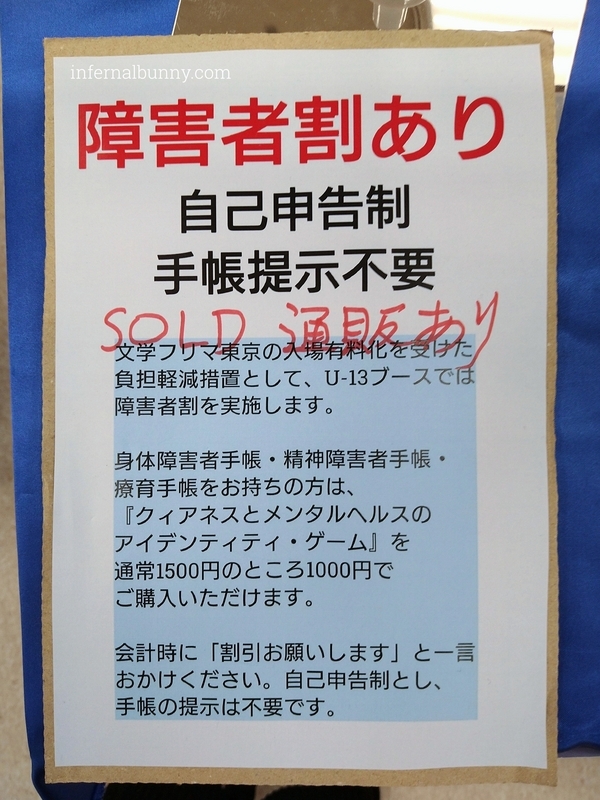 infernalbunny.com
障害者割あり
自己申告制
手帳提示不要
SOLD 通販あり
文学フリマ東京の入場有料化を受けた
負担軽減措置として、U-13ブースでは
障害者割を実施します。
身体障害者手帳・精神障害者手帳・
療育手帳をお持ちの方は、
『クィアネスとメンタルヘルスの
アイデンティティ・ゲーム』を
通常1500円のところ1000円で
ご購入いただけます。
会計時に「割引お願いします」と一言
おかけください。自己申告制とし、
手帳の提示は不要です。